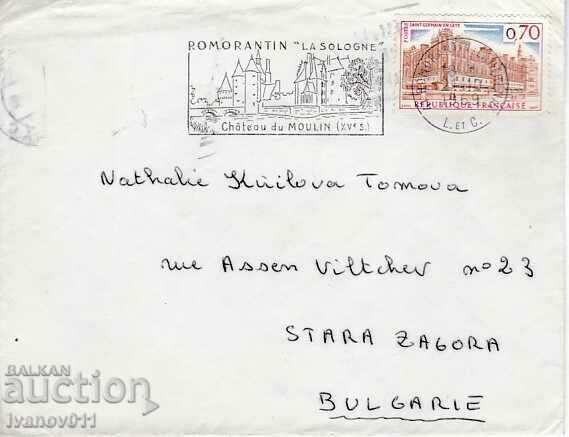 ROMORANTIN "LA SOLOGNE"
Château du MOULIN (XVe S.)
SAINT-GERMAIN-EN-LAYE
POSTES
0,70
REPUBLIQUE FRANÇAISE
L. ET C.
Nathalie Kirilova Tomova
rue Assen Viltchev no 23
STARA ZAGORA
BULGARIE
BALKAN
auction
ivanov011